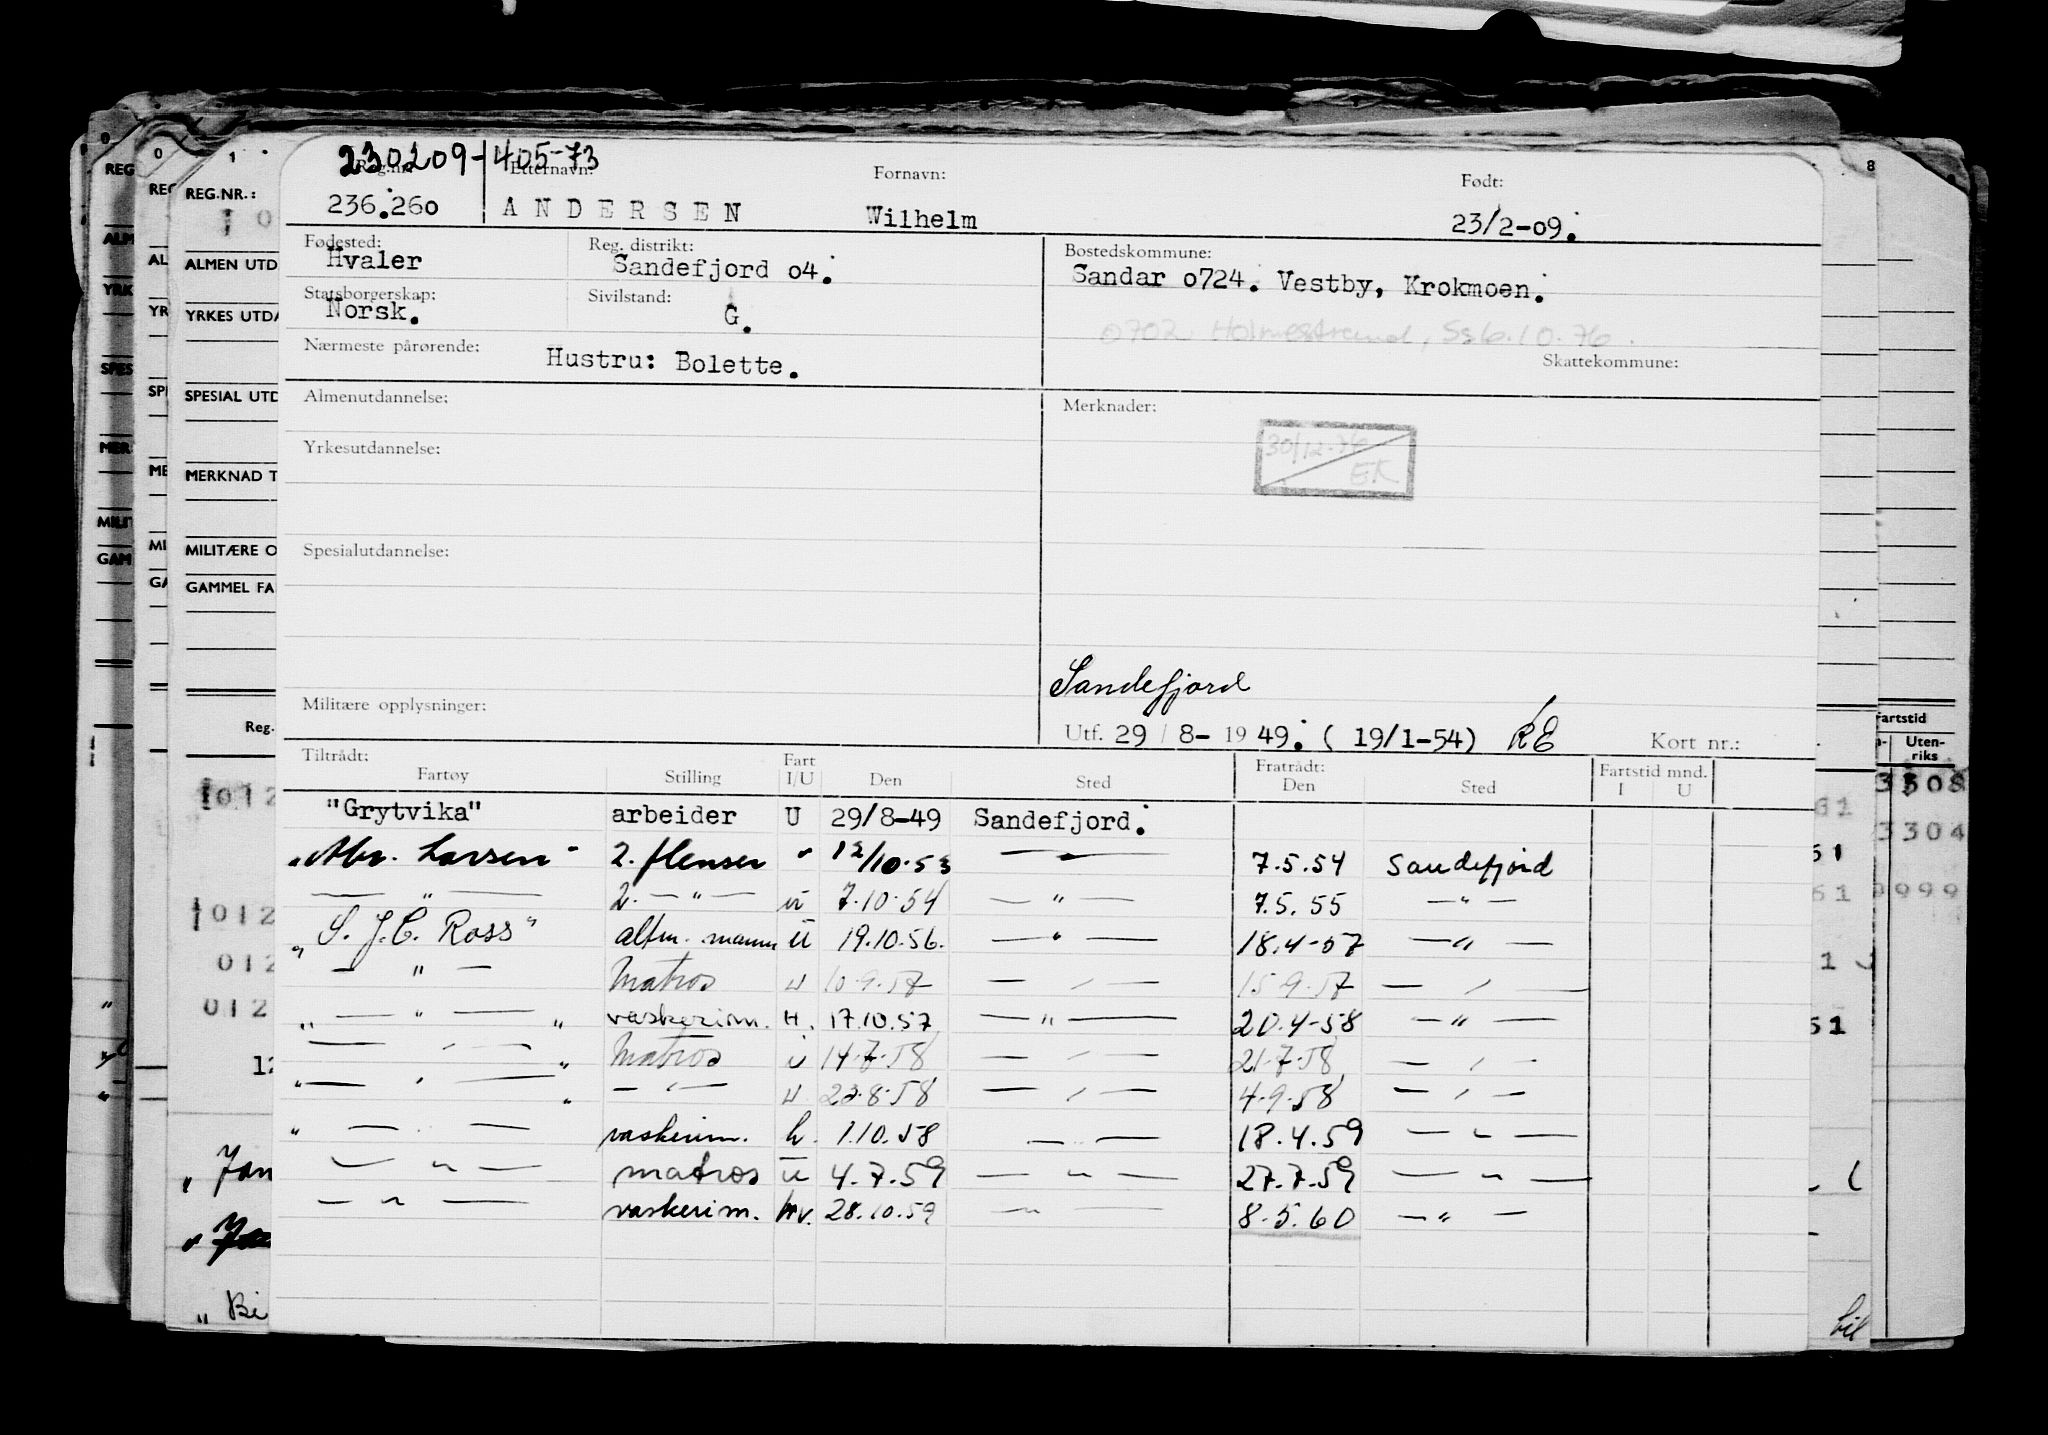 230209-405-73
Reg.nr. Etternavn: Fornavn: Født:
236.260 ANDERSEN Wilhelm 23/2-09.
Fødested: Reg. distrikt: Bostedskommune:
Hvaler Sandefjord o4. Sandar o724. Vestby, Krokmoen.
Statsborgerskap: Sivilstand:
Norsk. G.
0702 Holmestrand, Ss 6.10.76.
Nærmeste pårørende: Hustru: Bolette. Skattekommune:
Almenutdannelse: Merknader:
30/12-76
EK
Yrkesutdannelse:
Spesialutdannelse:
Sandefjord
Militære opplysninger: Utf. 29 / 8- 19 49. ( 19/1-54) RE Kort nr.:
Tiltrådt: Fart Fratrådt: Fartstid mnd.
Fartøy Stilling I/U Den Sted Den Sted I U
"Grytvika" arbeider U 29/8-49 Sandefjord.
"Abr. Larsen" 2. flenser " 12/10.53 — " — 7.5.54 Sandefjord
— " — 2. — " — u 7.10.54 — " — 7.5.55 — " —
"S. J.C. Ross" alm. mann U 19.10.56. — " — 18.4-57 — " —
— " — Matros u 10.9.57 — " — 15.9.57 — " —
" — " — " vaskerim. H. 17.10.57 — " — 20.4-58 — " —
— " — " Matros u 14.7.58 — " — 21.7.58 — " —
" — " — " — " — u 22.8.58 — " — 4.9.58 — " —
" — " — vaskerim. h. 1.10.58 — " — 18.4.59 — " —
— " — matros u 4.7.59 — " — 27.7.59 — " —
— " — vaskerim. Hv. 28.10.59 — " — 8.5.60 — " —
REG.NR.:
ALMEN UTD
YRKES UTDA
SPESIAL UTD
MERKNAD T
MILITÆRE O
GAMMEL FA
Reg.
Fartstid
Uten-
riks
3308
3304
9999